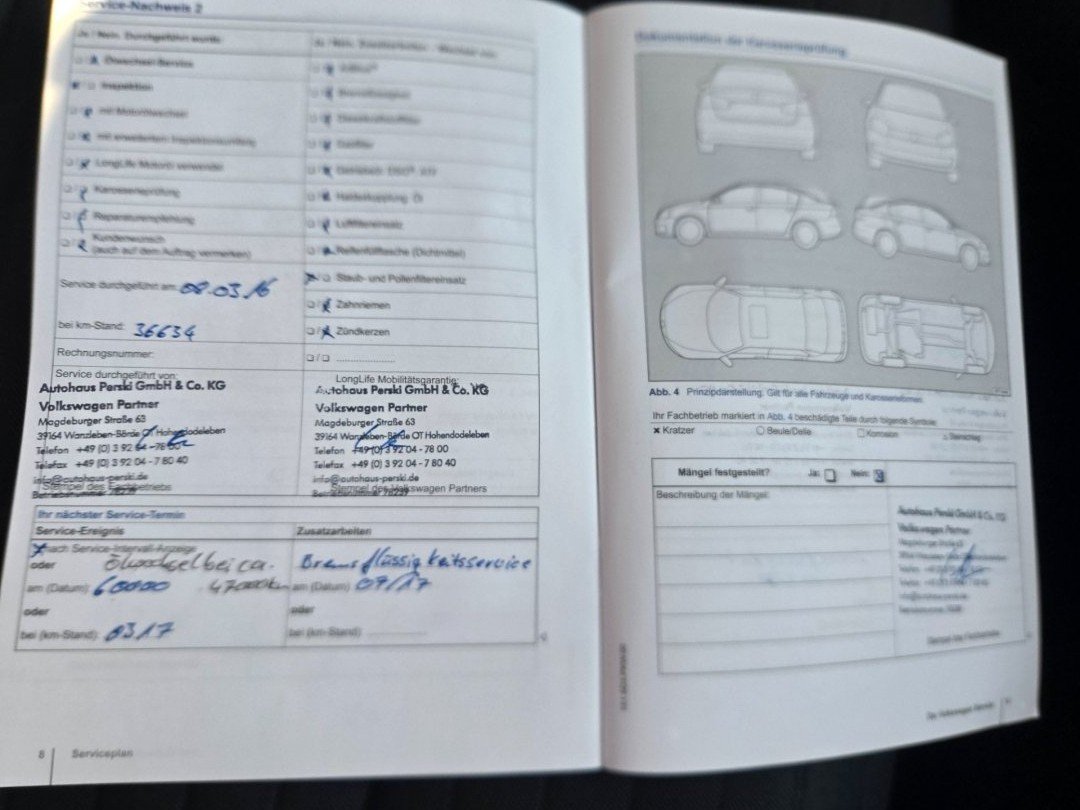 Service-Nachweis 2
Ja / Nein, Durchgeführt wurde
Ölwechsel-Service
Inspektion
mit Motorölwechsel
mit erweitertem Inspektionsumfang
LongLife Motoröl verwendet
Karosserieprüfung
Reparaturempfehlung
Kundenwunsch
(auch auf dem Auftrag vermerken)
Service durchgeführt am: 08.03.16
bei km-Stand: 36634
Rechnungsnummer:
Service durchgeführt von:
Autohaus Perski GmbH & Co. KG
Volkswagen Partner
Magdeburger Straße 63
39164 Wanzleben-Börde OT Hohendodeleben
Telefon +49 (0) 3 92 04 - 78 00
Telefax +49 (0) 3 92 04 - 7 80 40
info@autohaus-perski.de
Stempel des Fachbetriebs
Betriebsnummer 78239
Ja / Nein, Zusatzarbeiten
Bremsflüssigkeit
Dieselkraftstofffilter
Gasfilter
Haldexkupplung Öl
Luftfiltereinsatz
Reifenfüllflasche (Dichtmittel)
Staub- und Pollenfiltereinsatz
Zahnriemen
Zündkerzen
LongLife Mobilitätsgarantie:
Autohaus Perski GmbH & Co. KG
Volkswagen Partner
Magdeburger Straße 63
39164 Wanzleben-Börde OT Hohendodeleben
Telefon +49 (0) 3 92 04 - 78 00
Telefax +49 (0) 3 92 04 - 7 80 40
info@autohaus-perski.de
Stempel des Volkswagen Partners
Betriebsnummer 78239
Ihr nächster Service-Termin
Service-Ereignis Zusatzarbeiten
nach Service-Intervall-Anzeige
oder Ölwechsel bei ca. Bremsflüssigkeitsservice
am (Datum): 60000 47000km am (Datum): 09/17
oder oder
bei (km-Stand): 03.17 bei (km-Stand)
8 Serviceplan
Dokumentation der Karosserieprüfung
Abb. 4 Prinzipdarstellung: Gilt für alle Fahrzeuge und Karosserieformen.
Ihr Fachbetrieb markiert in Abb. 4 beschädigte Teile durch folgende Symbole:
x Kratzer Beule/Delle Korrosion Steinschlag
Mängel festgestellt? Ja: Nein:
Beschreibung der Mängel:
Autohaus Perski GmbH & Co. KG
Volkswagen Partner
Magdeburger Straße 63
Stempel des Fachbetriebs